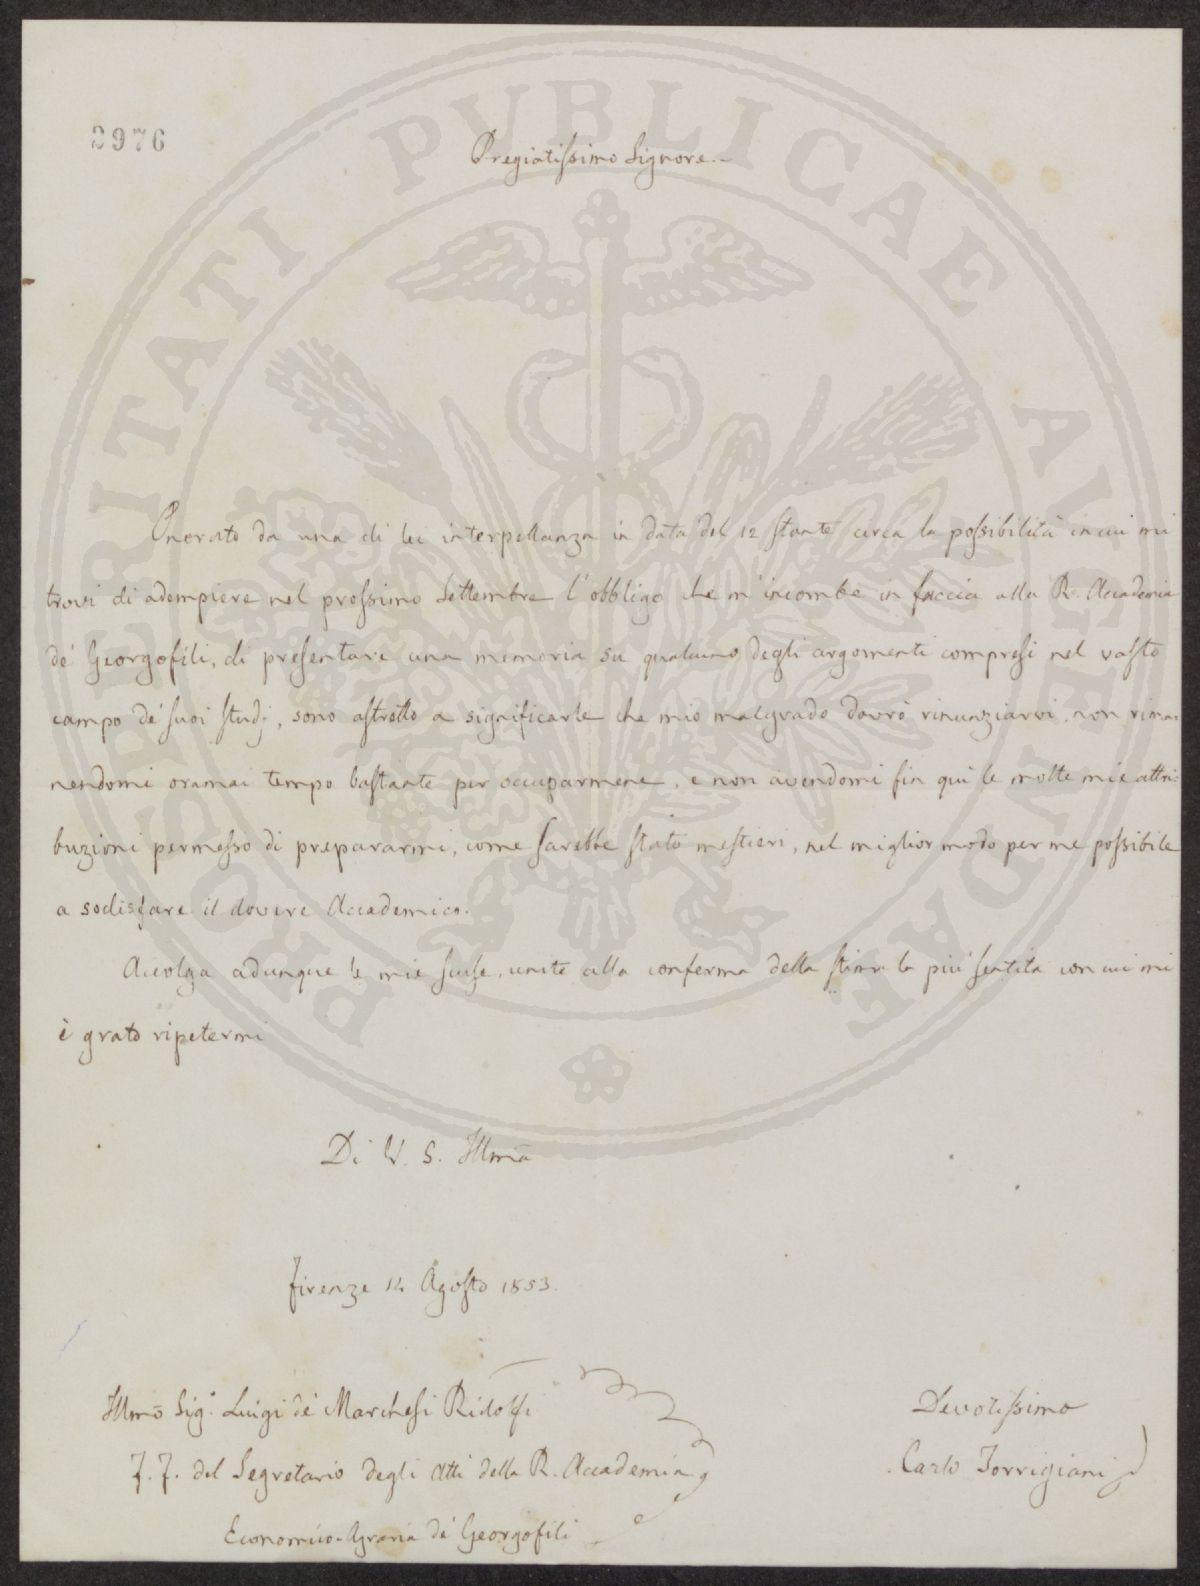 2976
Pregiatissimo Signore.
Onorato da una di lei interpellanza in data del 12 stante circa la possibilità in cui mi
trovi di adempiere nel prossimo Settembre l'obbligo che m'incombe in faccia alla R. Accademia
de' Georgofili, di presentare una memoria su qualcuno degli argomenti compresi nel vasto
campo de' suoi studj, sono astretto a significarle che mio malgrado dovrò rinunziarvi, non rima-
nendomi oramai tempo bastante per occuparmene, e non avendomi fin qui le molte mie attri-
buzioni permesso di prepararmi, come sarebbe stato mestieri, nel miglior modo per me possibile
a sodisfare il dovere Accademico.
Accolga adunque le mie scuse, unite alla conferma della stima la più sentita con cui mi
è grato ripetermi
Di V. S. Illma
Firenze 14 Agosto 1853.
Illmo Sig. Luigi de' Marchesi Ridolfi
F. F. del Segretario degli Atti della R. Accademia
Economico-Agraria de' Georgofili
Devotissimo
Carlo Torrigiani
PROSPERITATI PUBLICAE AUGENDAE